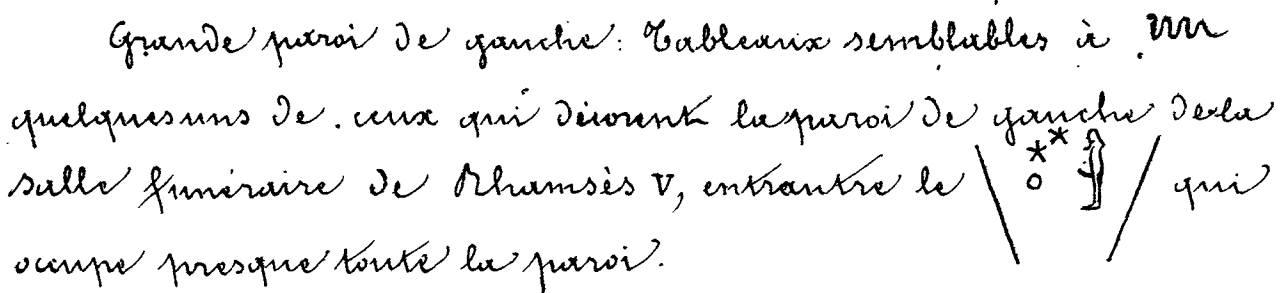 Grande paroi de gauche: Tableaux semblables à
quelquesuns de ceux qui décorent la paroi de gauche de la
salle funéraire de Rhamsès V, entr'autre le qui
occupe presque toute la paroi.